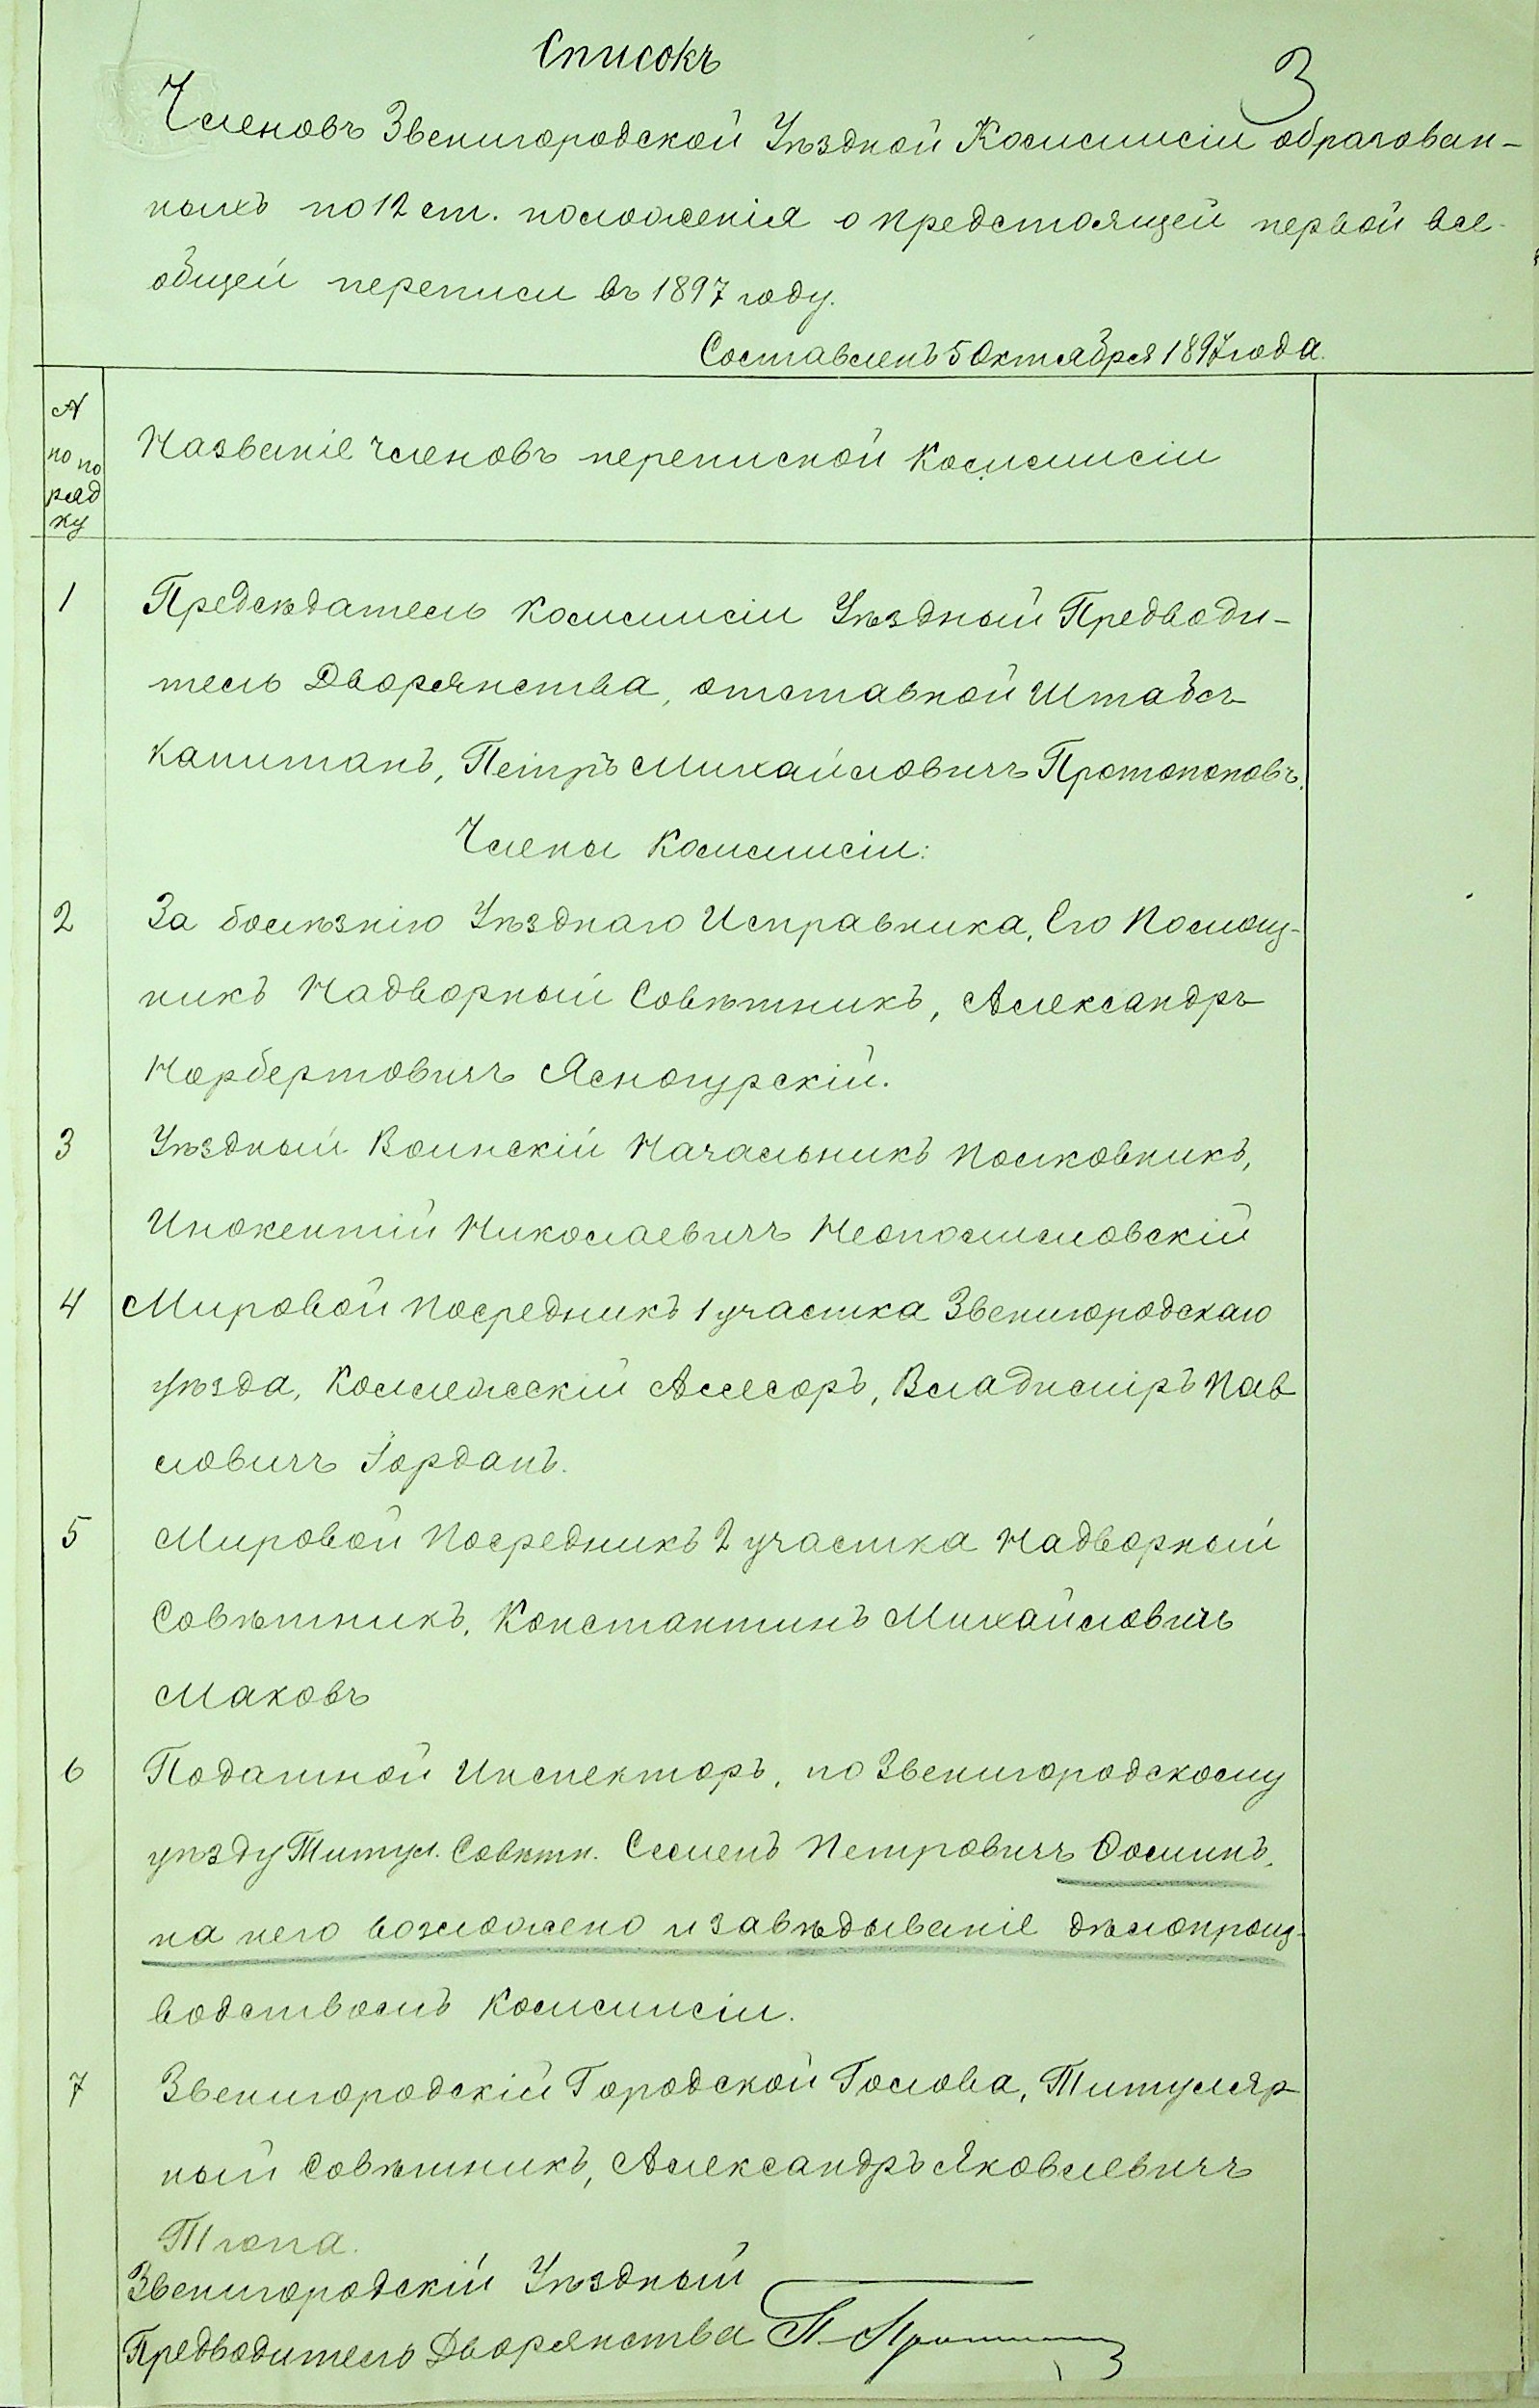 Списокъ
3
Членовъ Звенигородской Уѣздной Коммисіи образован-
ныхъ по 12 ст. положенія о предстоящей первой все-
общей переписи въ 1897 году.
Составленъ 5 Октября 1897 года.
№
по по
ряд
ку
Названіе членовъ переписной Коммисіи
1 Предсѣдатель Коммисіи Уѣздный Предводи-
тель Дворянства, отставной Штабсъ
Капитанъ, Петръ Михайловичъ Протопоповъ.
Члены Коммисіи:
2 За болѣзнію Уѣзднаго Исправника, Его Помощ-
никъ Надворный Совѣтникъ, Александръ
Норбертовичъ Ясногурскій.
3 Уѣздный Воинскій Начальникъ Полковникъ,
Инокентій Николаевичъ Неопомимовскій
4 Мировой Посредникъ 1 участка Звенигородскаго
уѣзда, Коллежскій Асесоръ, Владиміръ Пав
ловичъ Іорданъ.
5 Мировой Посредникъ 2 участка Надворный
Совѣтникъ, Константинъ Михайловичъ
Маковъ
6 Податной Инспекторъ, по Звенигородскому
уѣзду Титул. Совѣтн. Семенъ Петровичъ Фоминъ,
на него возложено и завѣдываніе дѣлопроиз-
водствомъ Коммисіи.
7 Звенигородскій Городской Голова, Титуляр
ный Совѣтникъ, Александръ Яковлевичъ
Тюпа.
Звенигородскій Уѣздный
Предводитель Дворянства П. Протопоповъ